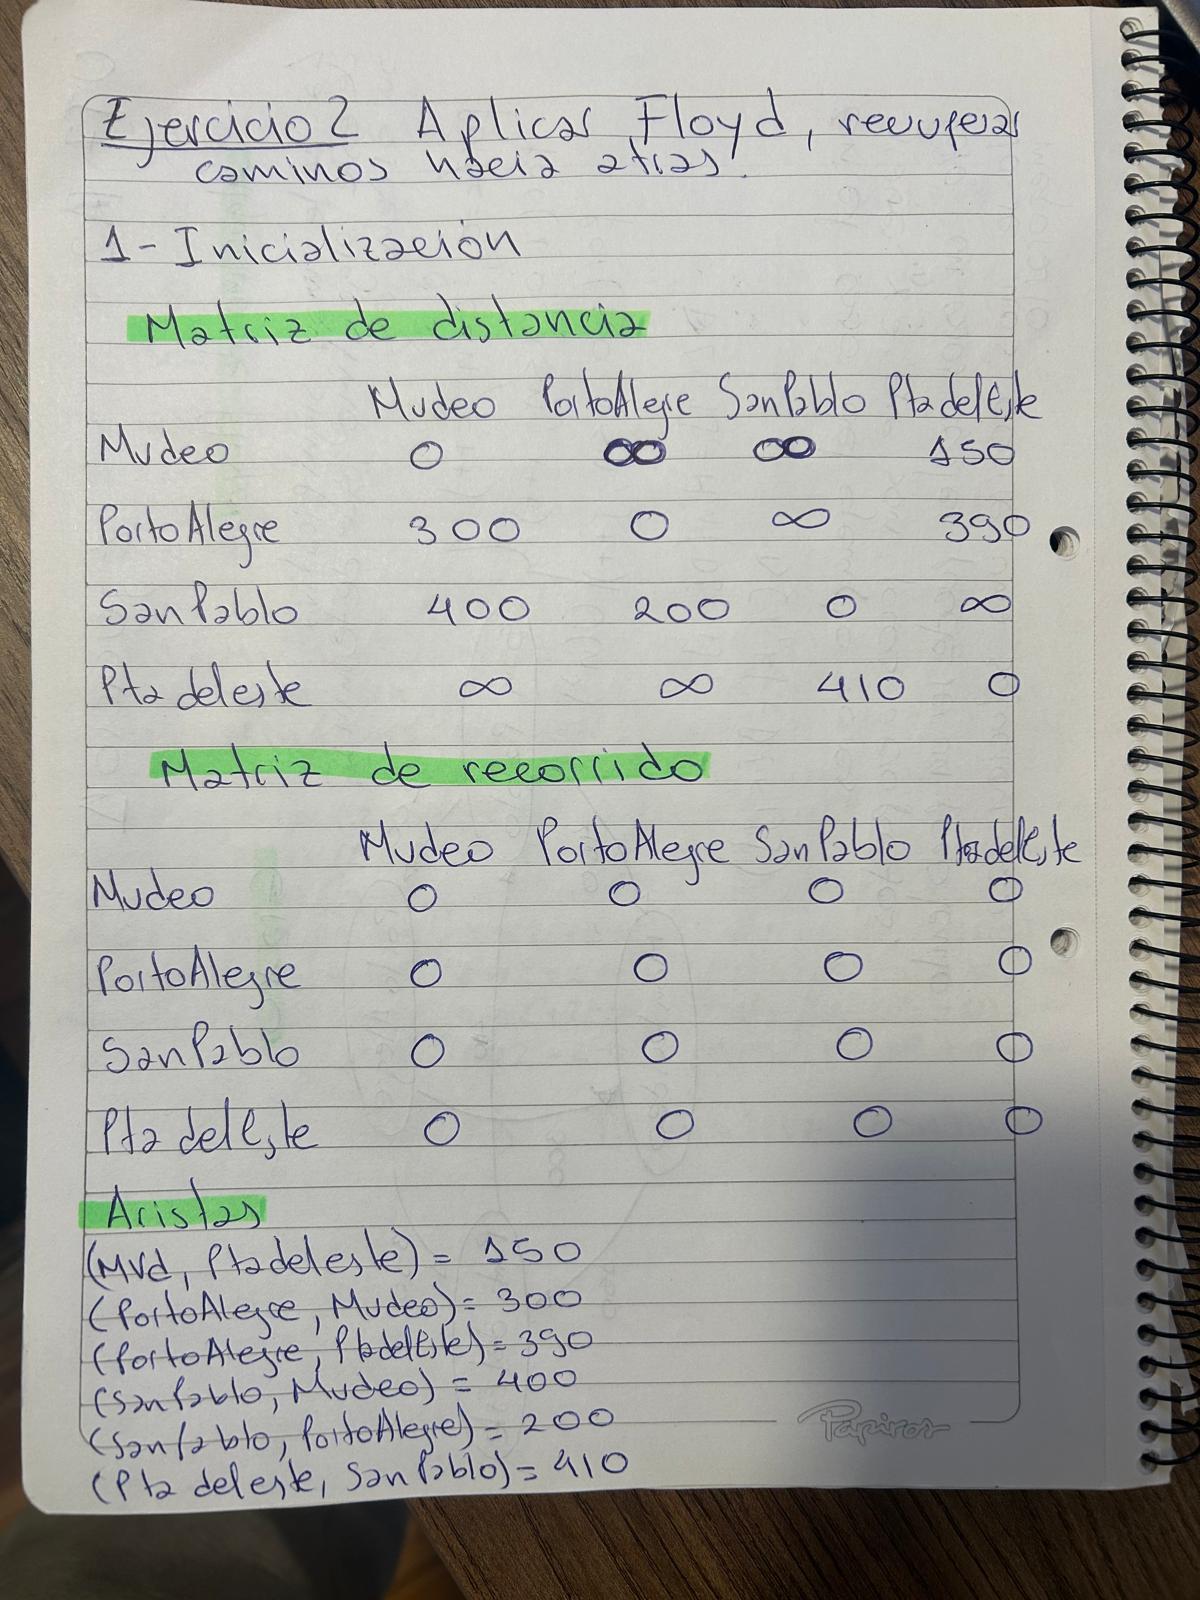 Ejercicio 2 Aplicar Floyd, recuperar
caminos hacia atras.
1- Inicialización
Matriz de distancia
Mvdeo PortoAlegre SanPablo Pta delEste
Mvdeo 0 ∞ ∞ 150
PortoAlegre 300 0 ∞ 390
SanPablo 400 200 0 ∞
Pta deleste ∞ ∞ 410 0
Matriz de recorrido
Mvdeo PortoAlegre SanPablo PtadelEste
Mvdeo 0 0 0 0
PortoAlegre 0 0 0 0
SanPablo 0 0 0 0
Pta delEste 0 0 0 0
Aristas
(Mvd, Ptadeleste) = 150
(PortoAlegre, Mvdeo) = 300
(PortoAlegre, PtadelEste) = 390
(SanPablo, Mvdeo) = 400
(SanPablo, PortoAlegre) = 200
(Pta deleste, SanPablo) = 410
Papiros